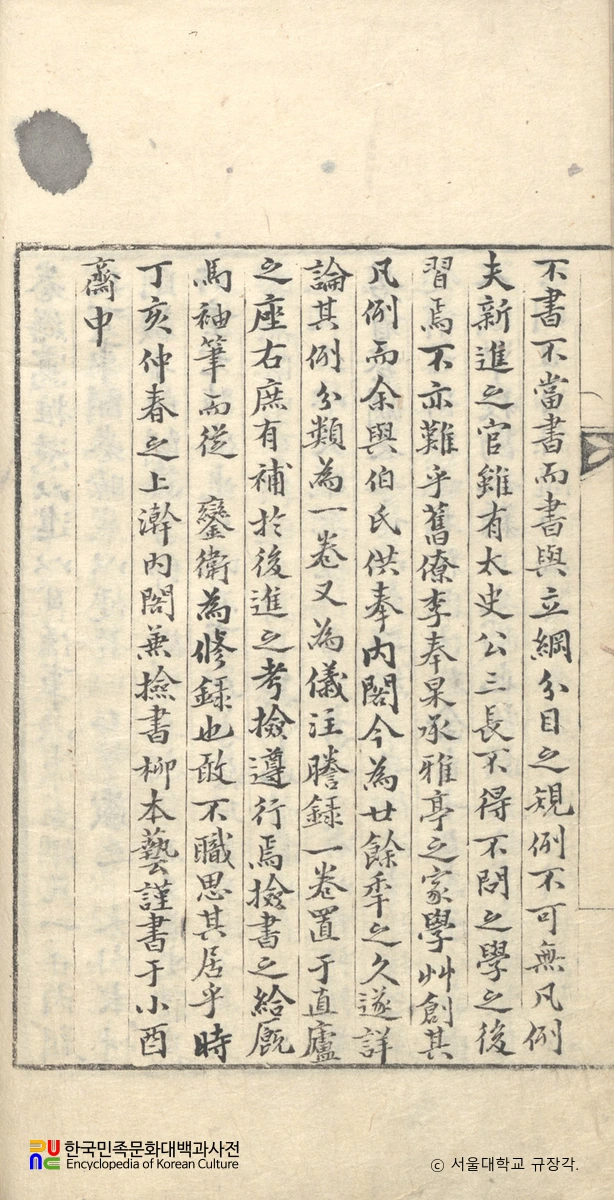 不書不當書而書與立綱分目之規例不可無凡例
夫新進之官雖有太史公三長不得不問之學之後
習焉不亦難乎舊僚李奉杲承雅亭之家學艸創其
凡例而余與伯氏供奉內閣今為廿餘秊之久遂詳
論其例分類為一卷又為儀注謄録一卷置于直廬
之座右庶有補於後進之考撿遵行焉撿書之給廐
馬袖筆而從 鑾衛為修録也敢不職思其居乎時
丁亥仲春之上澣內閣兼撿書柳本藝謹書于小酉
齋中
한국민족문화대백과사전
Encyclopedia of Korean Culture
ⓒ 서울대학교 규장각.